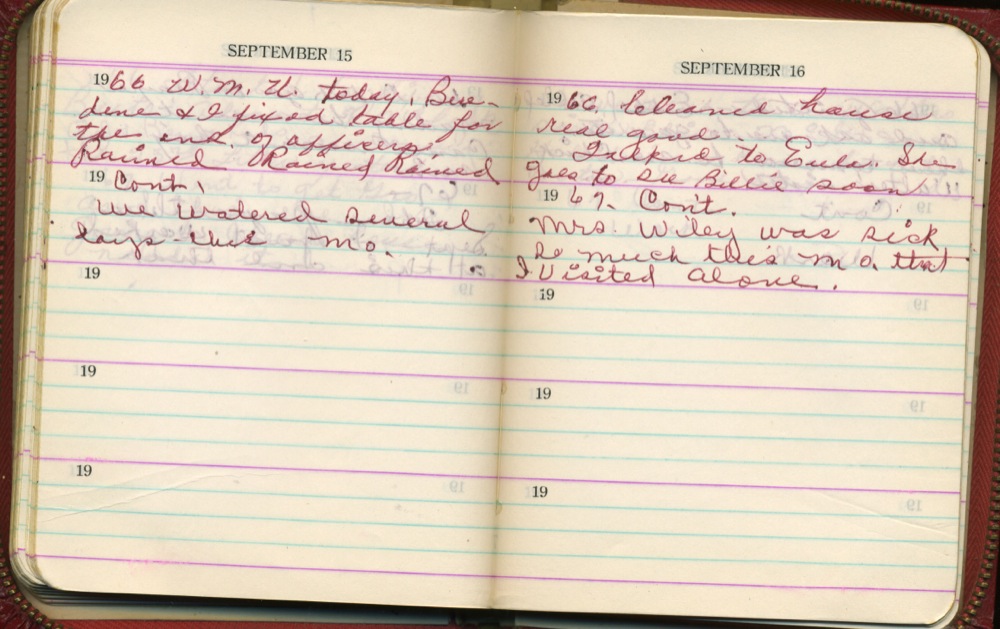 SEPTEMBER 15
1966 W.M.U. today. Bur-
dine & I fixed table for
the ins. of officers
Rained Rained Rained
19 Cont.
We watered several
days this mo.
19
19
19
SEPTEMBER 16
1966 Cleaned house
real good
Talked to Eula. She
goes to see Billie soon
1967. Cont.
Mrs. Wiley was sick
so much this mo. that
I visited alone.
19
19
19